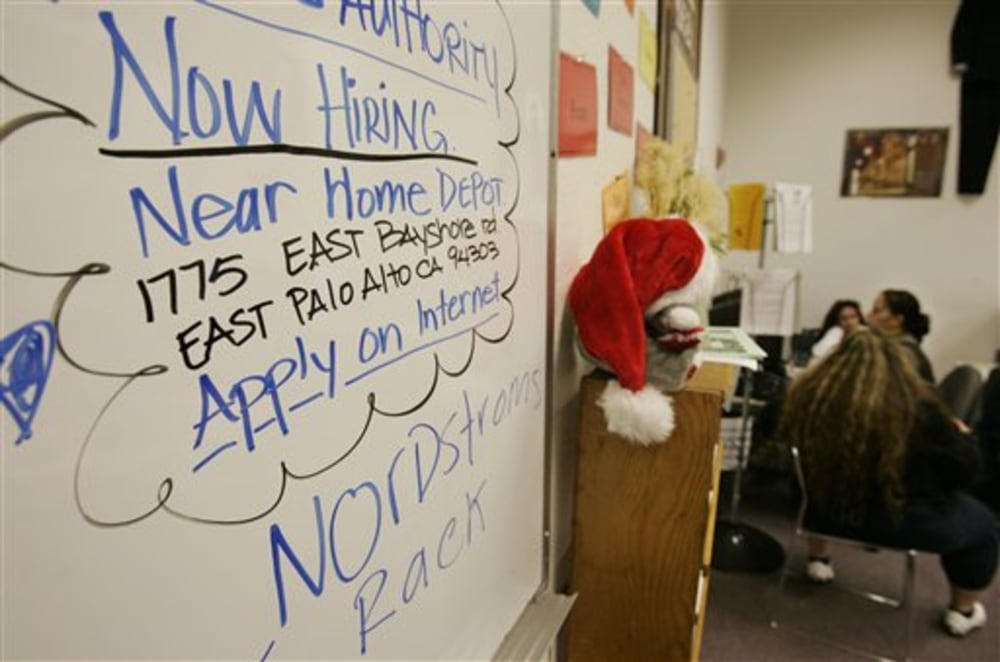 AUTHORITY
NOW HIRING.
Near Home DEPOT
1775 EAST BAYSHORE rd
EAST PALO ALTO CA 94303
APPly on Internet
NORDstroms
Rack